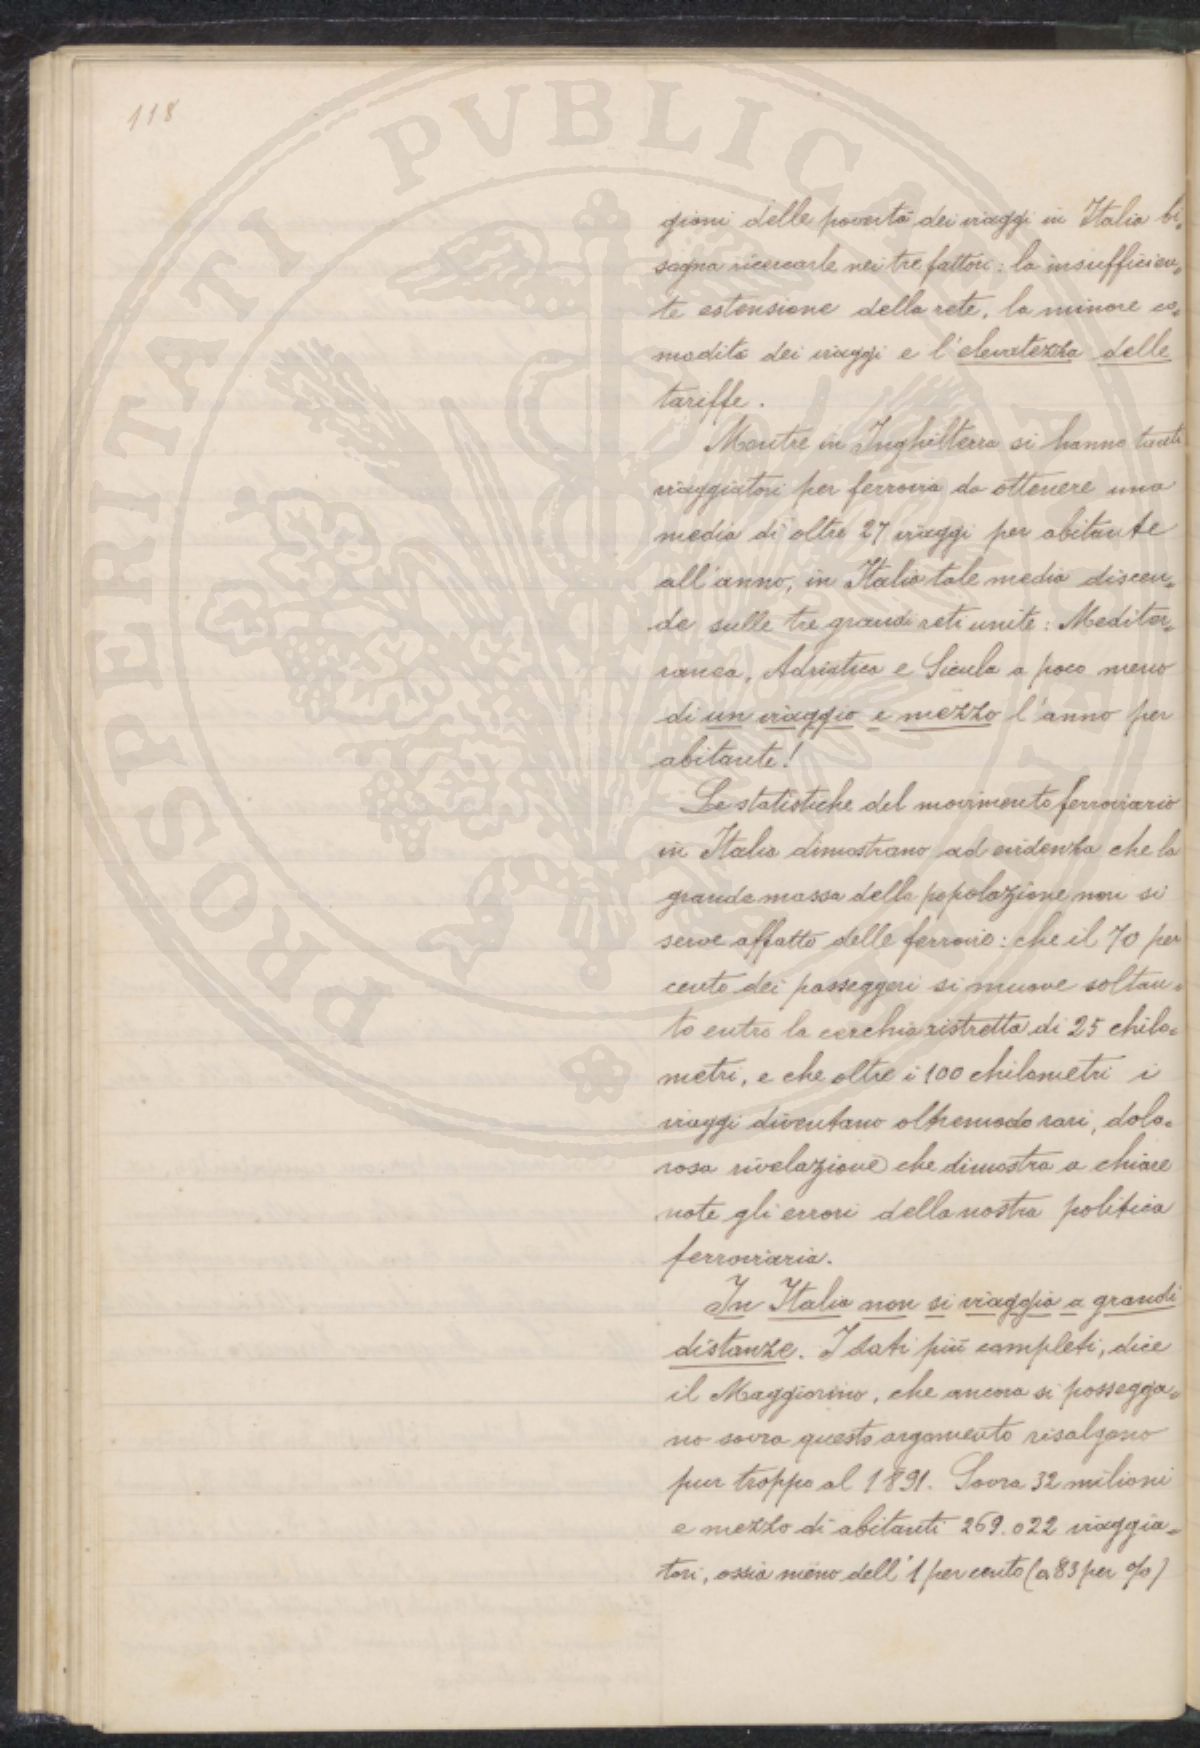 118
PROSPERITATI PVBLICAE
gioni delle povertà dei viaggi in Italia bi=
sogna ricercarle nei tre fattori: la insufficien=
te estensione della rete, la minore co=
modità dei viaggi e l'elevatezza delle
tariffe.
Mentre in Inghilterra si hanno tanti
viaggiatori per ferrovia da ottenere una
media di oltre 27 viaggi per abitante
all'anno, in Italia tale media discen=
de sulle tre grandi reti unite: Mediter=
ranea, Adriatica e Sicula a poco meno
di un viaggio e mezzo l'anno per
abitante!
Le statistiche del movimento ferroviario
in Italia dimostrano ad evidenza che la
grande massa della popolazione non si
serve affatto delle ferrovie: che il 70 per
cento dei passeggeri si muove soltan=
to entro la cerchia ristretta di 25 chilo=
metri, e che oltre i 100 chilometri i
viaggi diventano oltremodo rari, dolo=
rosa rivelazione che dimostra a chiare
note gli errori della nostra politica
ferroviaria.
In Italia non si viaggia a grandi
distanze. I dati più completi, dice
il Maggiorino, che ancora si possegga=
no sovra questo argomento risalgono
pur troppo al 1891. Sovra 32 milioni
e mezzo di abitanti 269.022 viaggia=
tori, ossia meno dell'1 per cento (0,83 per %)